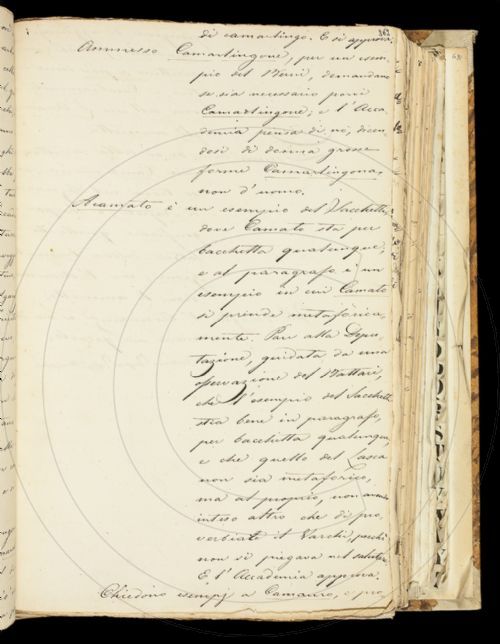 862
di camarlingo. E si approva;
Ammesso Camarlingone, per un esem-
pio del Berni, domandano
se sia necessario porvi
Camarlingone; e l'Acca-
demia pensa di no, dicen-
dosi di donna grosse
forme Camarlingona,
non d'uomo.
A camato è un esempio del Sacchetti,
dove Camato sta per
bacchetta qualunque;
e al paragrafo è un
esempio in cui Camato
si prende metaforica-
mente. Pare alla Depu-
tazione, guidata da una
osservazione del
che l'esempio del Sacchetti
stia bene in paragrafo,
per bacchetta qualunque,
e che quello del Lasca
non sia metaforico,
ma al proprio, non avendo
inteso altro che di pro-
verbiare il Varchi, perchè
non si piegava nel salutare.
E l'Accademia approva.
Chiedono esempj a Camauro, e pro